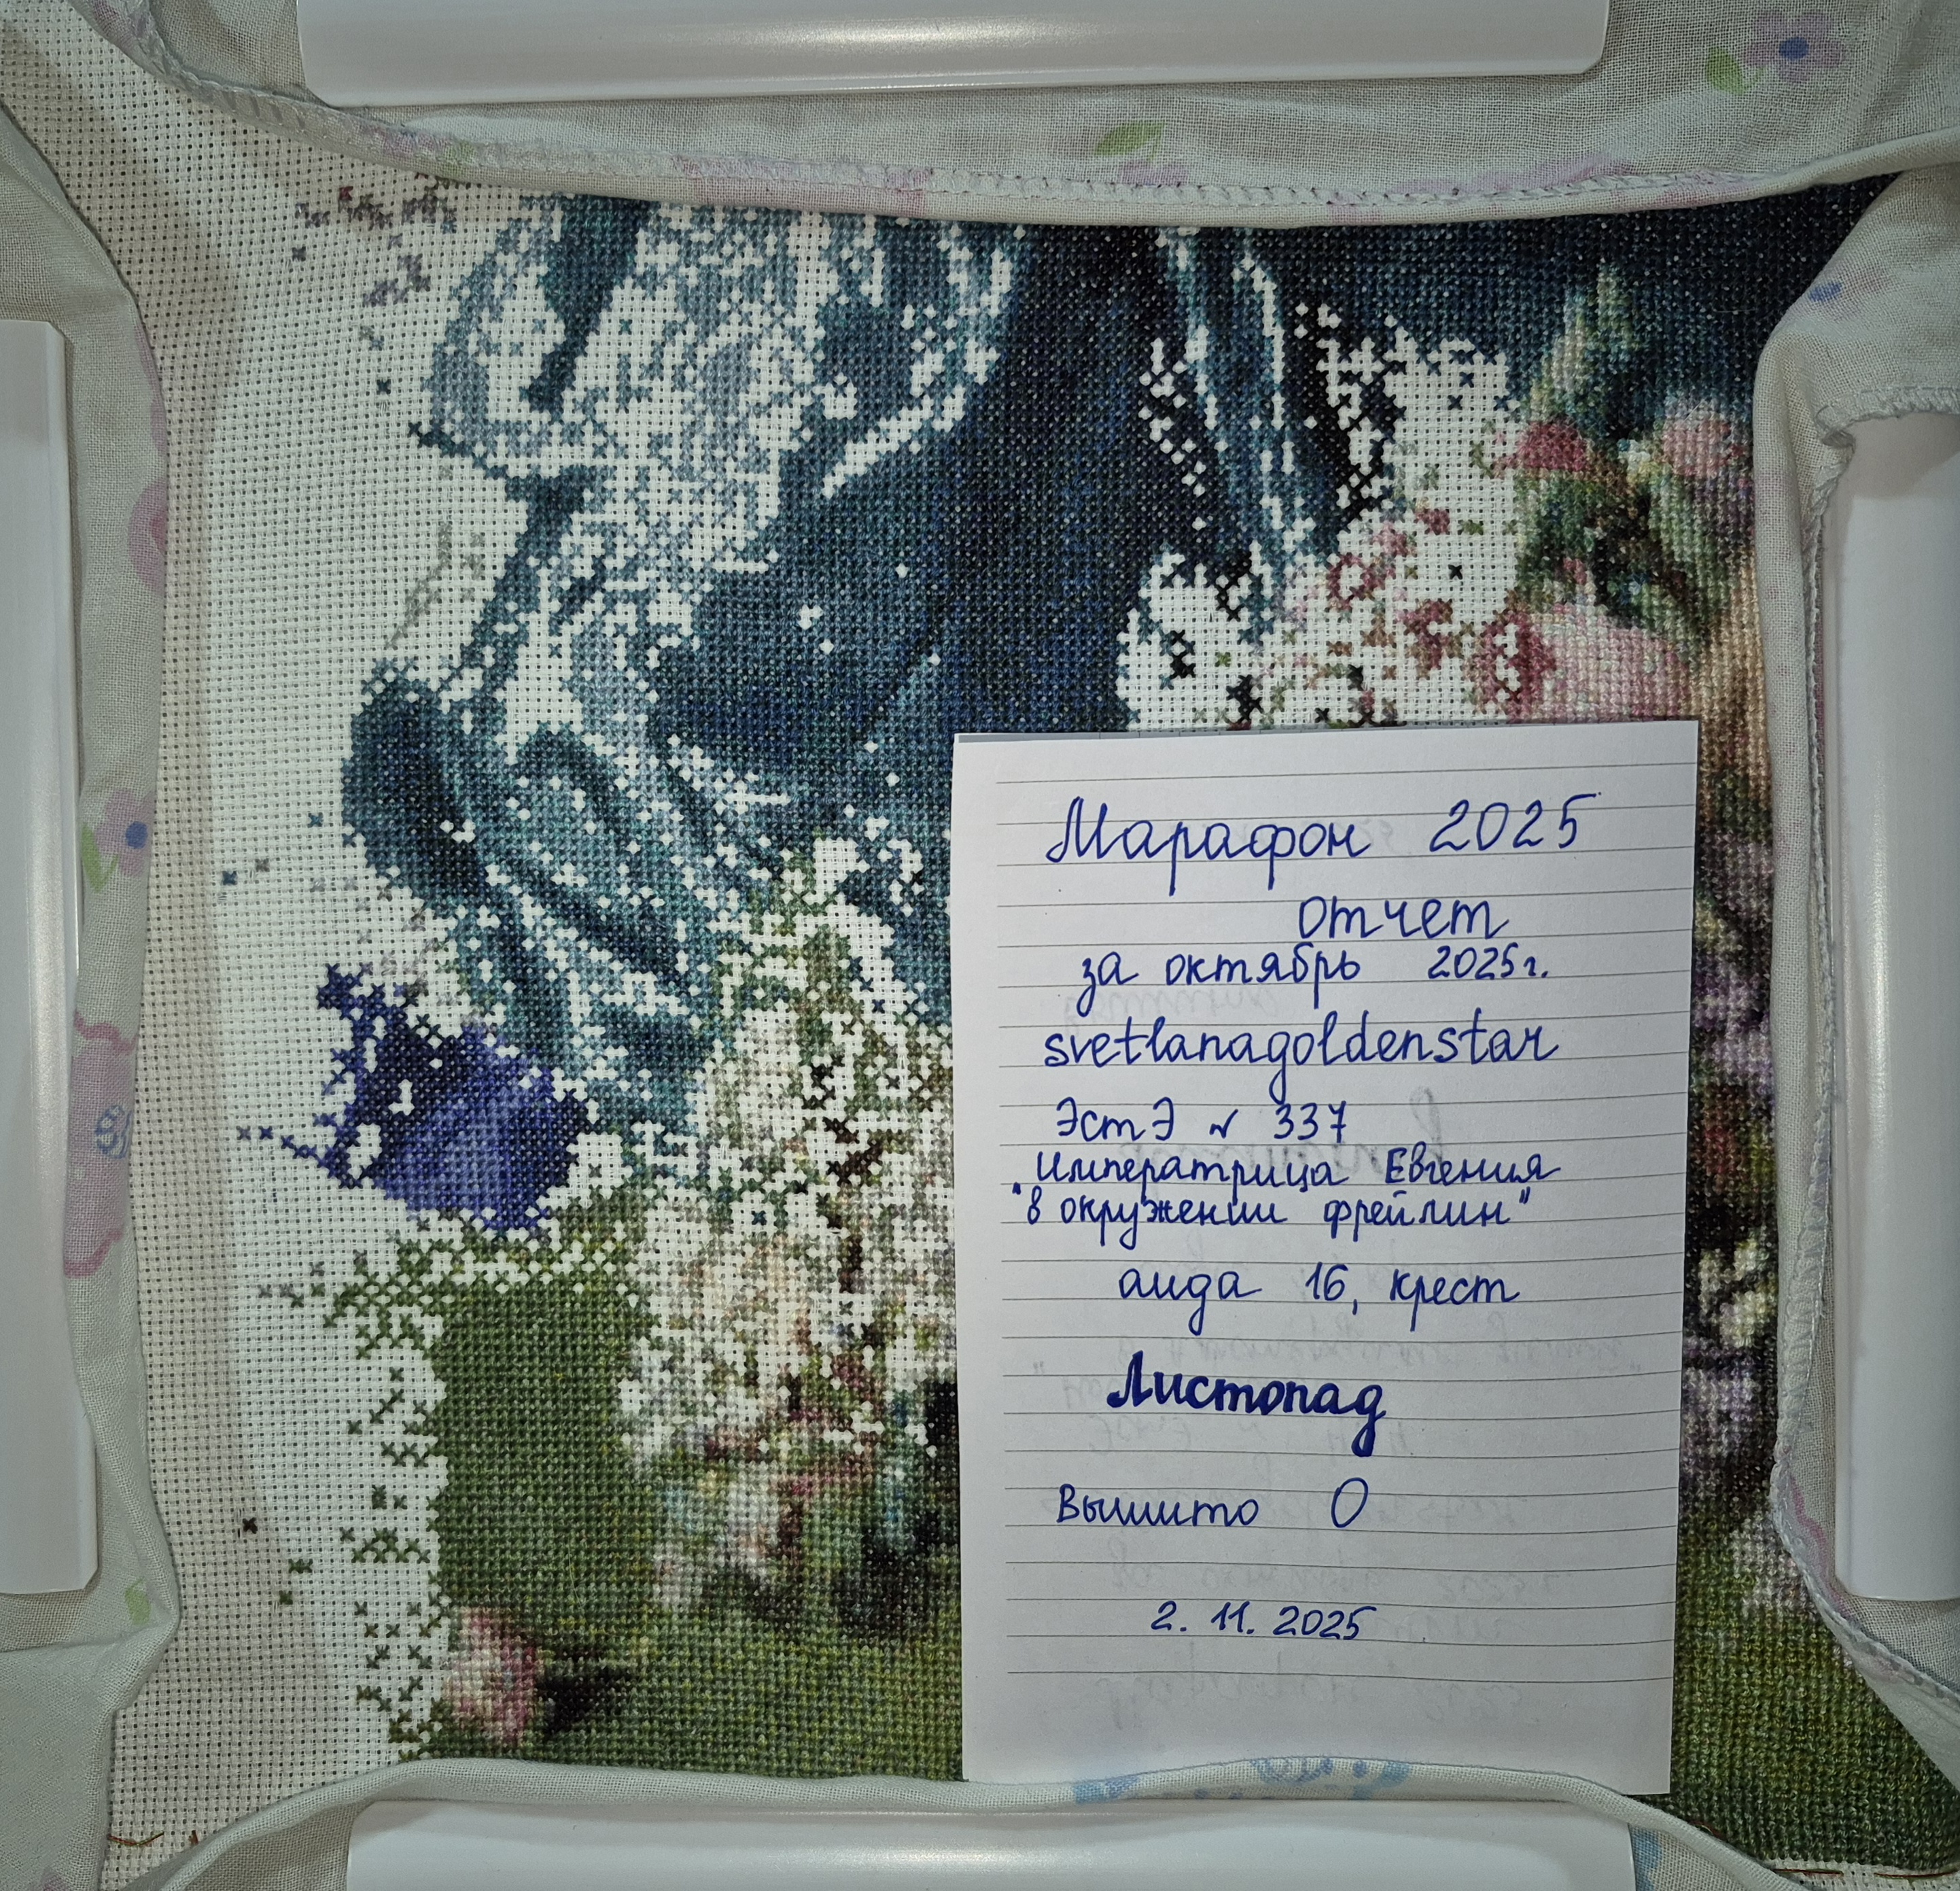 Марафон 2025
отчет
за октябрь 2025г.
svetlanagoldenstar
ЭстЭ № 337
Императрица Евгения
"в окружении фрейлин"
аида 16, крест
Листопад
Вышито 0
2. 11. 2025